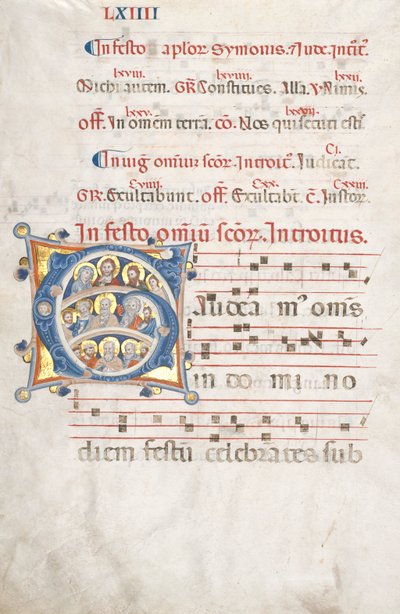 LXIIII
In festo aplor. Symonis. & Jude. Introit.
lxviii. lxviiii. lxxii.
Michi autem. GR. Constitues. Alla. V. Nimis.
lxxv.
off. In omem terra. co. Nos qui secuti esti
Cj.
In uig. omniu scor. Introit. Iudicat.
Cviiii. Cxx. Cxxiii.
GR. Exultabunt. off. Exultabt. c. Iustor.
In festo omiu scor. Introitus.
Gaudeam oms
in do mi no
diem festu celebra tes sub